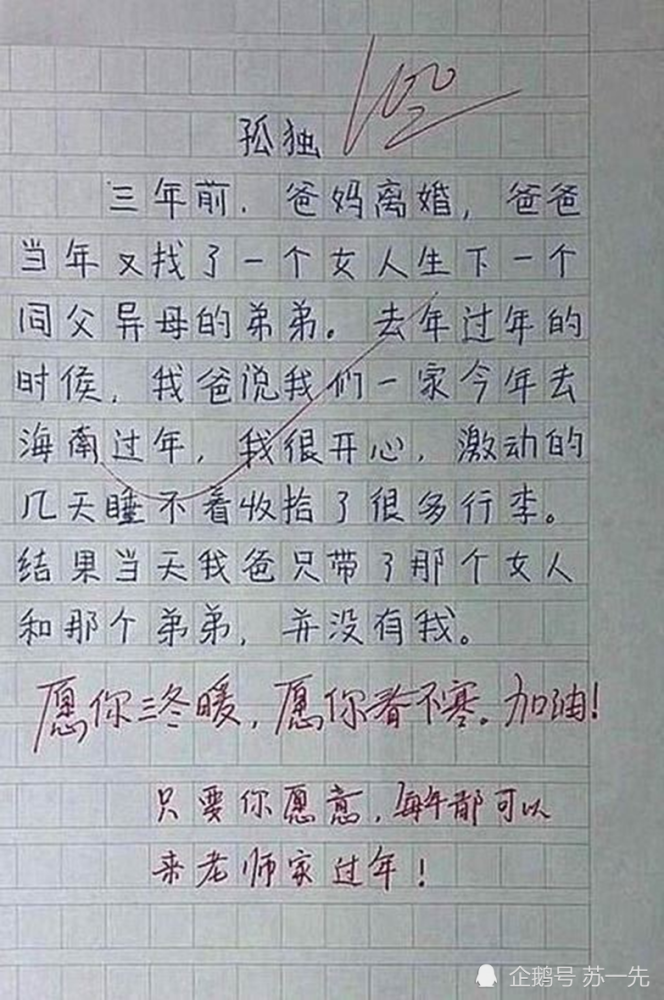 100
孤独
三年前，爸妈离婚，爸爸
当年又找了一个女人生下一个
同父异母的弟弟。去年过年的
时候，我爸说我们一家今年去
海南过年，我很开心，激动的
几天睡不着收拾了很多行李。
结果当天我爸只带了那个女人
和那个弟弟，并没有我。
愿你三冬暖，愿你春不寒。加油！
只要你愿意，每年都可以
来老师家过年！
企鹅号 苏一先